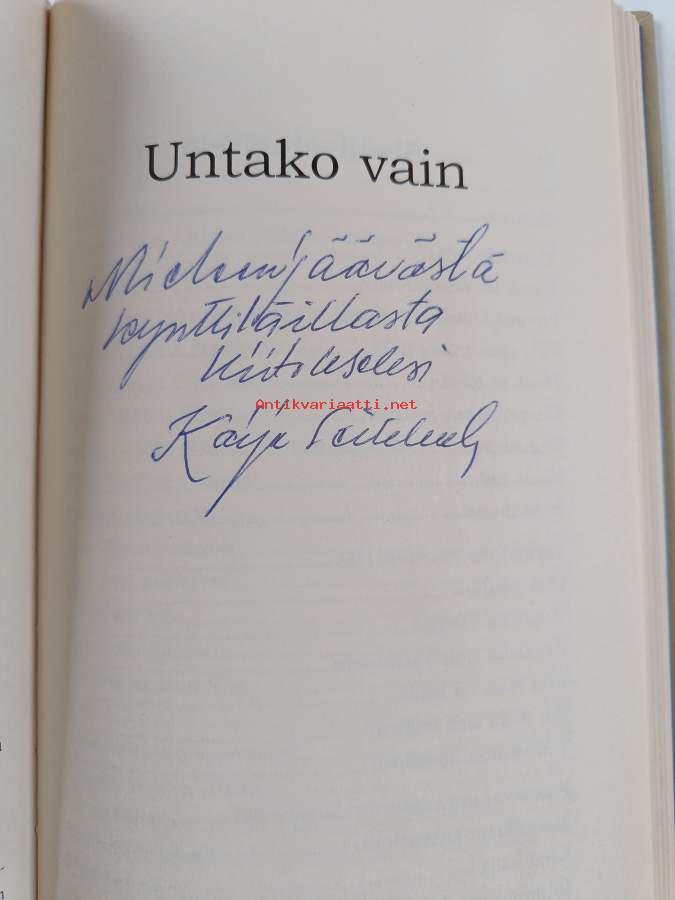 Untako vain
Mieleenjäävästä
kynttiläillasta
kiitokseksi
Antikvariaatti.net
Kaija